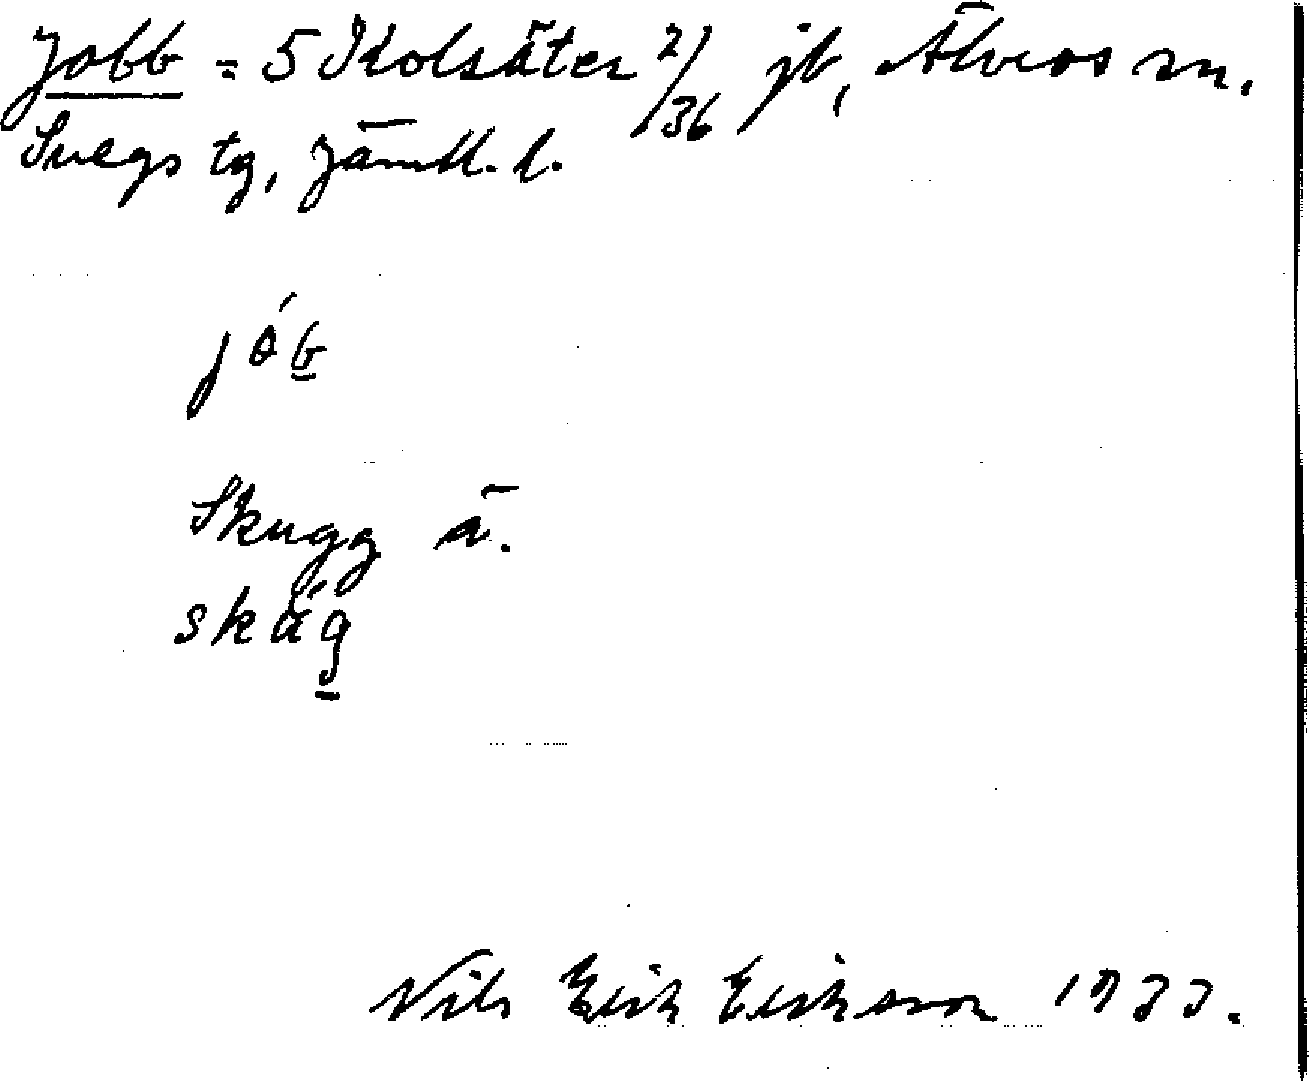 Jobb = 5 Kolsäter 2/36 jb, Älvros sn.
Svegs tg, Jämtl. l.
jób
Skugg ä.
skúg
Nils Erik Eriksson 1933.